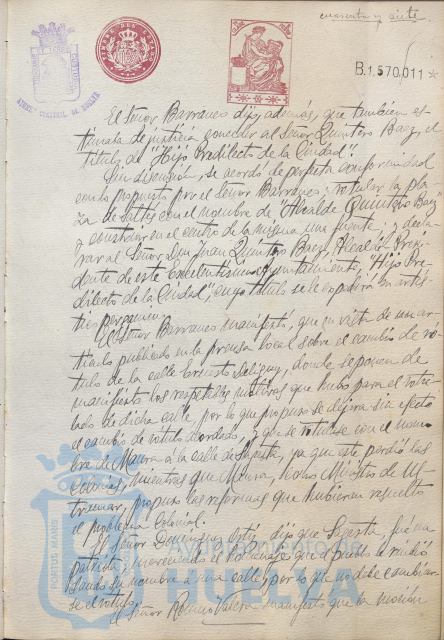 cuarenta y siete.
TIMBRE DEL ESTADO
B.1.570.011*
El Señor Barranco dijo, además, que tambien es-
timaba de justicia conceder al Señor Quintero Baez, el
título de "Hijo Predilecto de la Ciudad".
Sin discusión, se acordó de perfecta conformidad
con lo propuesto por el Señor Barranco: rotular la pla-
za de Saltés con el nombre de "Alcalde Quintero Baez"
y construir en el centro de la misma una fuente; y decla-
rar al Señor Don Juan Quintero Baez, Alcalde-Presi-
dente de este Excelentísimo Ayuntamiento, "Hijo Pre-
dilecto de la Ciudad", cuyo título se le expedirá en artís-
tico pergamino.
El Señor Barranco manifestó, que en vista de un ar-
tículo publicado en la prensa local sobre el cambio de ró-
tulo de la calle Ernesto Deligny, donde se ponen de
manifiesto los respetables motivos que hubo para el rotu-
lado de dicha calle, por lo que propuso se dejara sin efecto
el cambio de rótulo acordado, y que se rotulase con el nom-
bre de Maura a la calle Sagasta, ya que este perdió las
Colonias, mientras que Maura, como Ministro de Ul-
tramar, propuso las reformas que hubieran resuelto
el problema colonial.
El Señor Dominguez Ortiz, dijo que Sagasta, fué un
patriota, mereciendo el homenaje que Huelva le rindió
dando su nombre a una calle, por lo que no debe cambiar-
se el rótulo.
El Señor Romero Valera manifestó que la moción
PORTUS MARIS
Ayuntamiento de
HUELVA